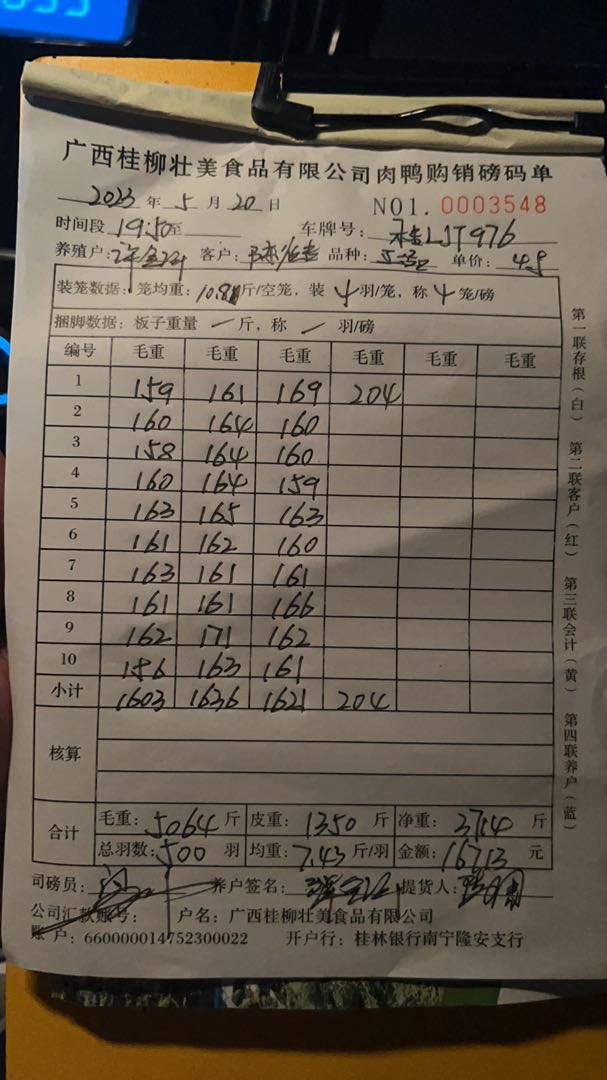 广西桂柳壮美食品有限公司肉鸭购销磅码单
2023 年 5 月 20 日 NO1. 0003548
时间段 19:50 至 车牌号: LJT976
养殖户: 客户: 品种: 单价:
装笼数据: 笼均重: 斤/空笼, 装 4 羽/笼, 称 4 笼/磅
捆脚数据: 板子重量 一 斤, 称 羽/磅
编号 毛重 毛重 毛重 毛重 毛重 毛重
1 159 161 169 204
2 160 164 160
3 158 164 160
4 160 164 159
5 163 165 163
6 161 162 160
7 163 161 161
8 161 161 166
9 162 171 162
10 156 163 161
小计 1603 1636 1621 204
核算
合计 毛重: 5064 斤 皮重: 1350 斤 净重: 3714 斤
总羽数: 500 羽 均重: 7.43 斤/羽 金额: 16713 元
司磅员: 养户签名: 提货人:
公司汇款账号: 户名: 广西桂柳壮美食品有限公司
账 户: 660000014752300022 开户行: 桂林银行南宁隆安支行
第一联存根(白) 第二联客户(红) 第三联会计(黄) 第四联养户(蓝)